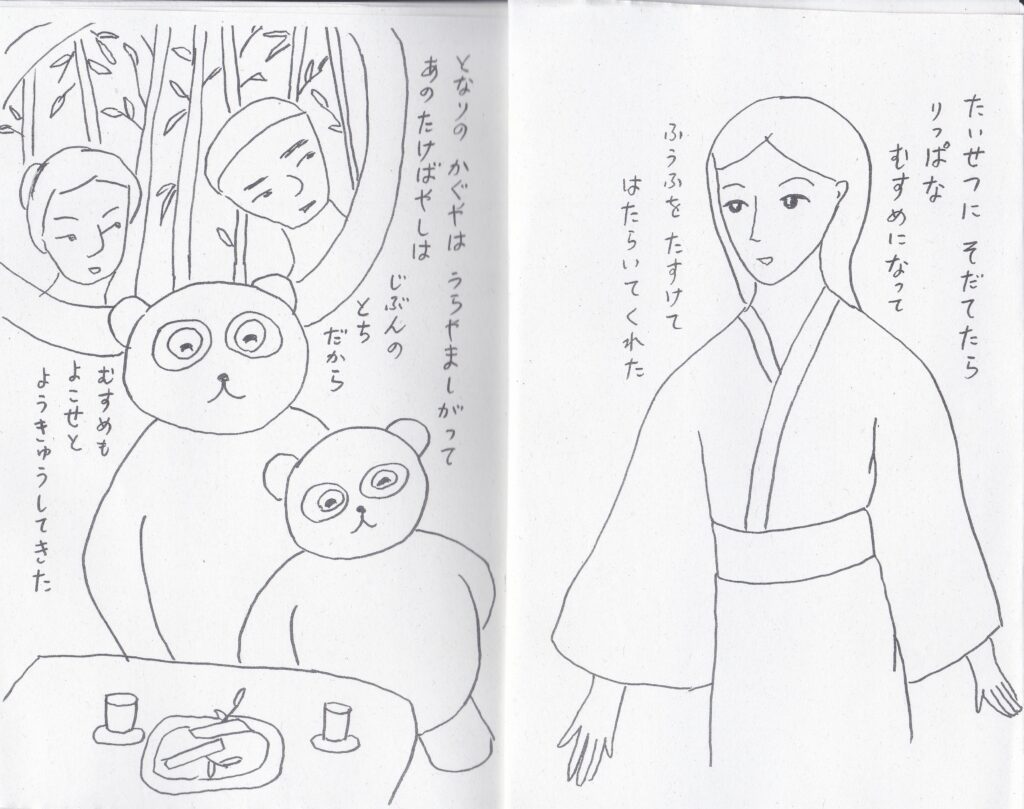 たいせつに そだてたら
りっぱな
むすめになって
ふうふを たすけて
はたらいてくれた
となりの かぐやは うらやましがって
あのたけばやしは
じぶんの
とち
だから
むすめも
よこせと
ようきゅうしてきた